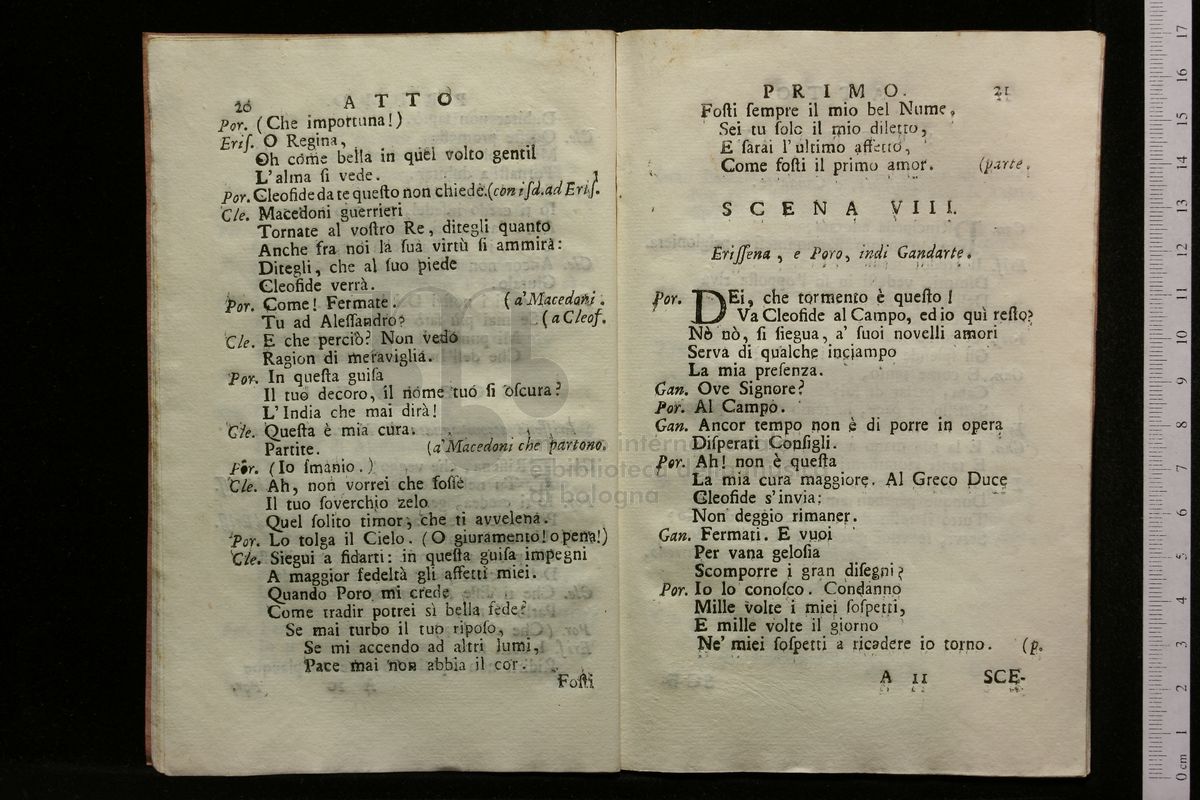 20 ATTO
Por. (Che importuna!)
Eriſ. O Regina,
Oh come bella in quel volto gentil
L'alma ſi vede.
Por. Cleofide da te queſto non chiede.(con iſd. ad Eriſ.
Cle. Macedoni guerrieri
Tornate al voſtro Re, ditegli quanto
Anche fra noi la ſua virtù ſi ammira:
Ditegli, che al ſuo piede
Cleofide verrà.
Por. Come! Fermate. (a' Macedoni.
Tu ad Aleſſandro? (a Cleof.
Cle. E che perciò? Non vedo
Ragion di meraviglia.
Por. In queſta guiſa
Il tuo decoro, il nome tuo ſi oſcura?
L'India che mai dirà!
Cle. Queſta è mia cura.
Partite. (a' Macedoni che partono.
Por. (Io ſmanio.)
Cle. Ah, non vorrei che foſſe
Il tuo ſoverchio zelo
Quel ſolito timor, che ti avvelena.
Por. Lo tolga il Cielo. (O giuramento! o pena!)
Cle. Siegui a fidarti: in queſta guiſa impegni
A maggior fedeltà gli affetti miei.
Quando Poro mi crede
Come tradir potrei sì bella fede?
Se mai turbo il tuo ripoſo,
Se mi accendo ad altri lumi,
Pace mai non abbia il cor.
Foſti
PRIMO. 21
Foſti ſempre il mio bel Nume,
Sei tu ſolo il mio diletto,
E ſarai l'ultimo affetto,
Come foſti il primo amor. (parte.
SCENA VIII.
Eriſſena, e Poro, indi Gandarte.
Por. DEi, che tormento è queſto!
Va Cleofide al Campo, ed io quì reſto?
Nò nò, ſi ſiegua, a' ſuoi novelli amori
Serva di qualche inciampo
La mia preſenza.
Gan. Ove Signore?
Por. Al Campo.
Gan. Ancor tempo non è di porre in opera
Diſperati Conſigli.
Por. Ah! non è queſta
La mia cura maggiore. Al Greco Duce
Cleofide s'invia:
Non deggio rimaner.
Gan. Fermati. E vuoi
Per vana geloſia
Scomporre i gran diſegni?
Por. Io lo conoſco. Condanno
Mille volte i miei ſoſpetti,
E mille volte il giorno
Ne' miei ſoſpetti a ricadere io torno. (p.
A 11 SCE-
museo internazionale
e biblioteca della musica
di bologna
17
16
15
14
13
12
11
10
9
8
7
6
5
4
3
2
1
0 cm